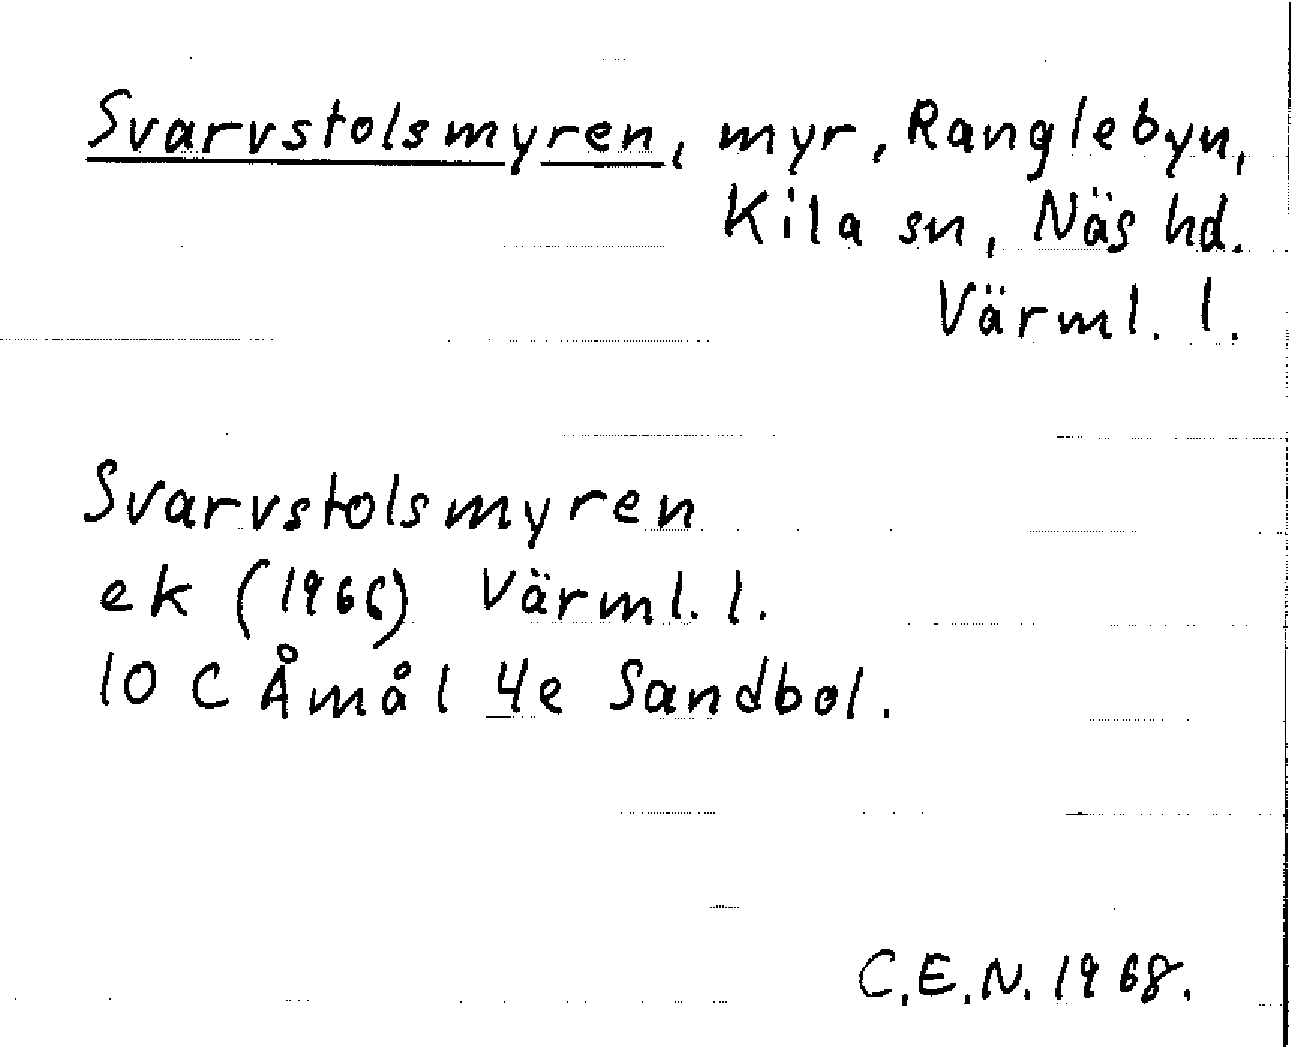 Svarvstolsmyren, myr, Ranglebyn,
Kila sn, Näs hd.
Värml. l.
Svarvstolsmyren
ek (1966) Värml. l.
10 C Åmål 4e Sandbol.
C.E.N. 1968.